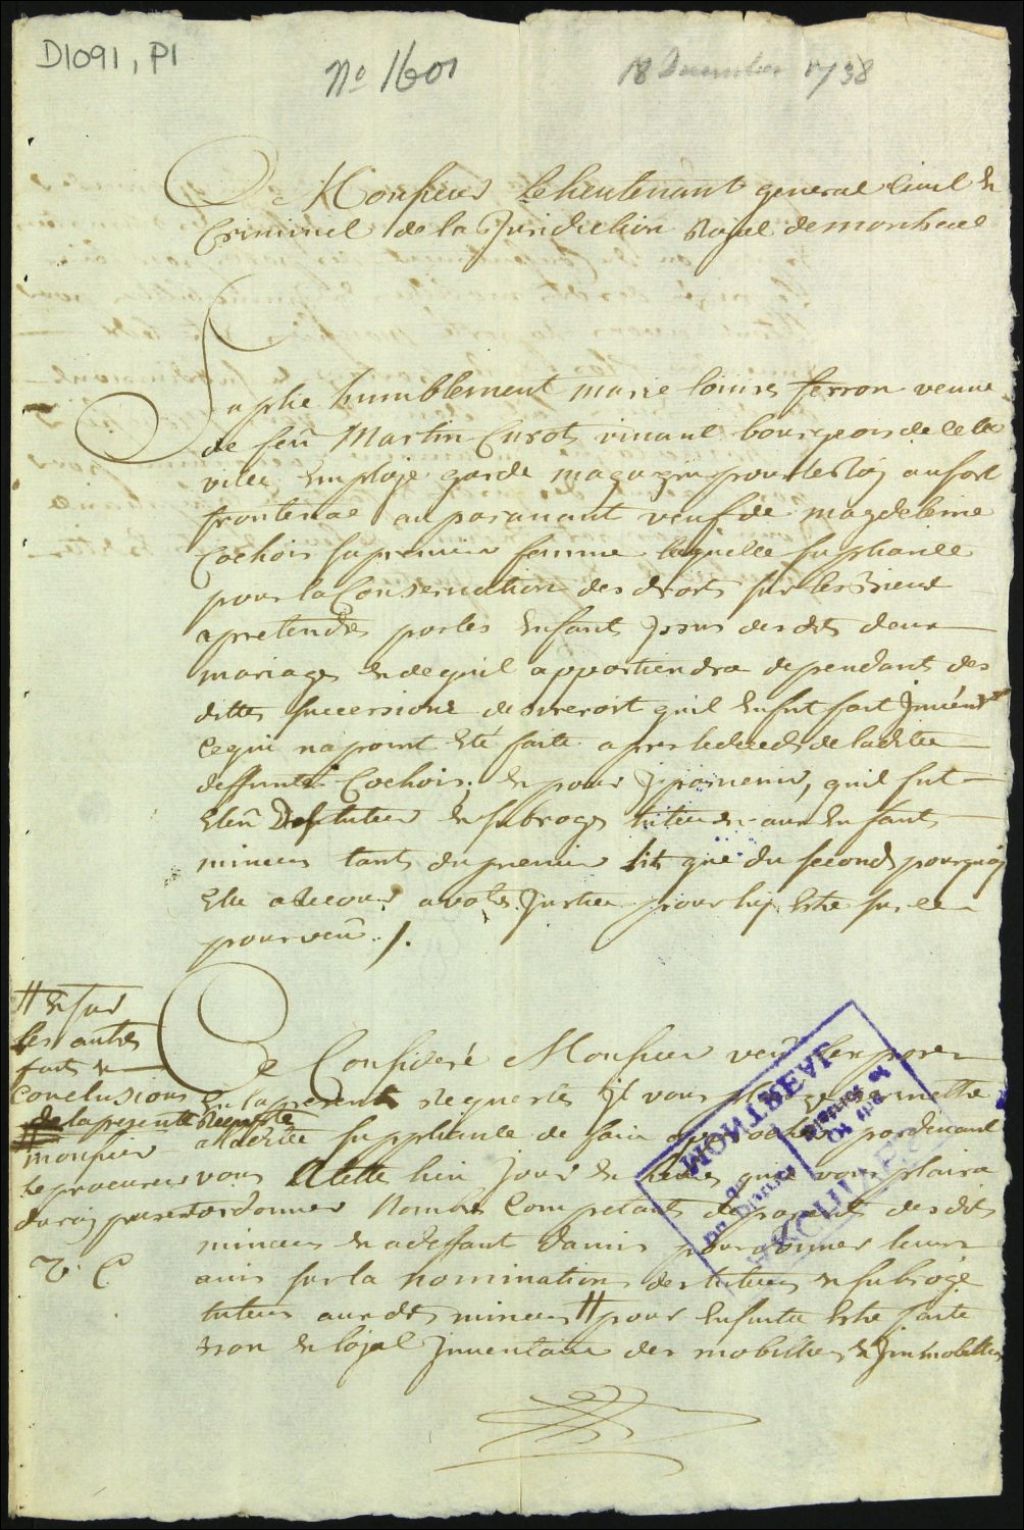 D1091, P1
No 1601
18 Decembre 1738
A Monsieur Le lieutenant general Civil &
Criminel de la Jurisdiction Royal de montreal
Suplie humblement marie louise ferron veuve
de feu Martin Curot vivant bourgeois de cette
ville Employe garde magazin pour le Roy au fort
frontenac auparavant veuf de magdeleine
Cochois sa premiere femme laquelle supliante
pour la Conservation des droits sur les Biens
a pretendre par les Enfants Jssus des dts deux
mariages & de quil appartiendra dependant des
dittes successions desireroit quil en fut fait Jnventre
ce qui na point Eté faite apres le deceds de ladite
deffunte Cochois. & pour y parvenir, quil fut
Eleu Des tuteur & subroge tuteur aux Enfants
mineurs tant du premier lit que du second pourquoy
Elle a recours a votre Justice pour luy Estre sur ce
pourveu ./.
Ce Consideré Monsieur veu lexposé
En la presente Requeste Jl vous plaize permettre
a ladite suppliante de faire approcher pardevant
vous A cette fin jour & heure quil vous plaira
ordonner Nombre Competant de parents desdits
mineurs & a deffaut damis pour donner leurs
avis sur la nomination des tuteur & subrogé
tuteur auxdts mineurs # pour Ensuitte Estre faite
bon & loyal Jnventaire des mobilliers & Jmmobilliers
# & sur
les autres
faits &
conclusions
de la presente Requeste
monsieur
le procureur
du roy present
V. C.
ARCHIVES
DU DISTRICT DE
MONTREAL